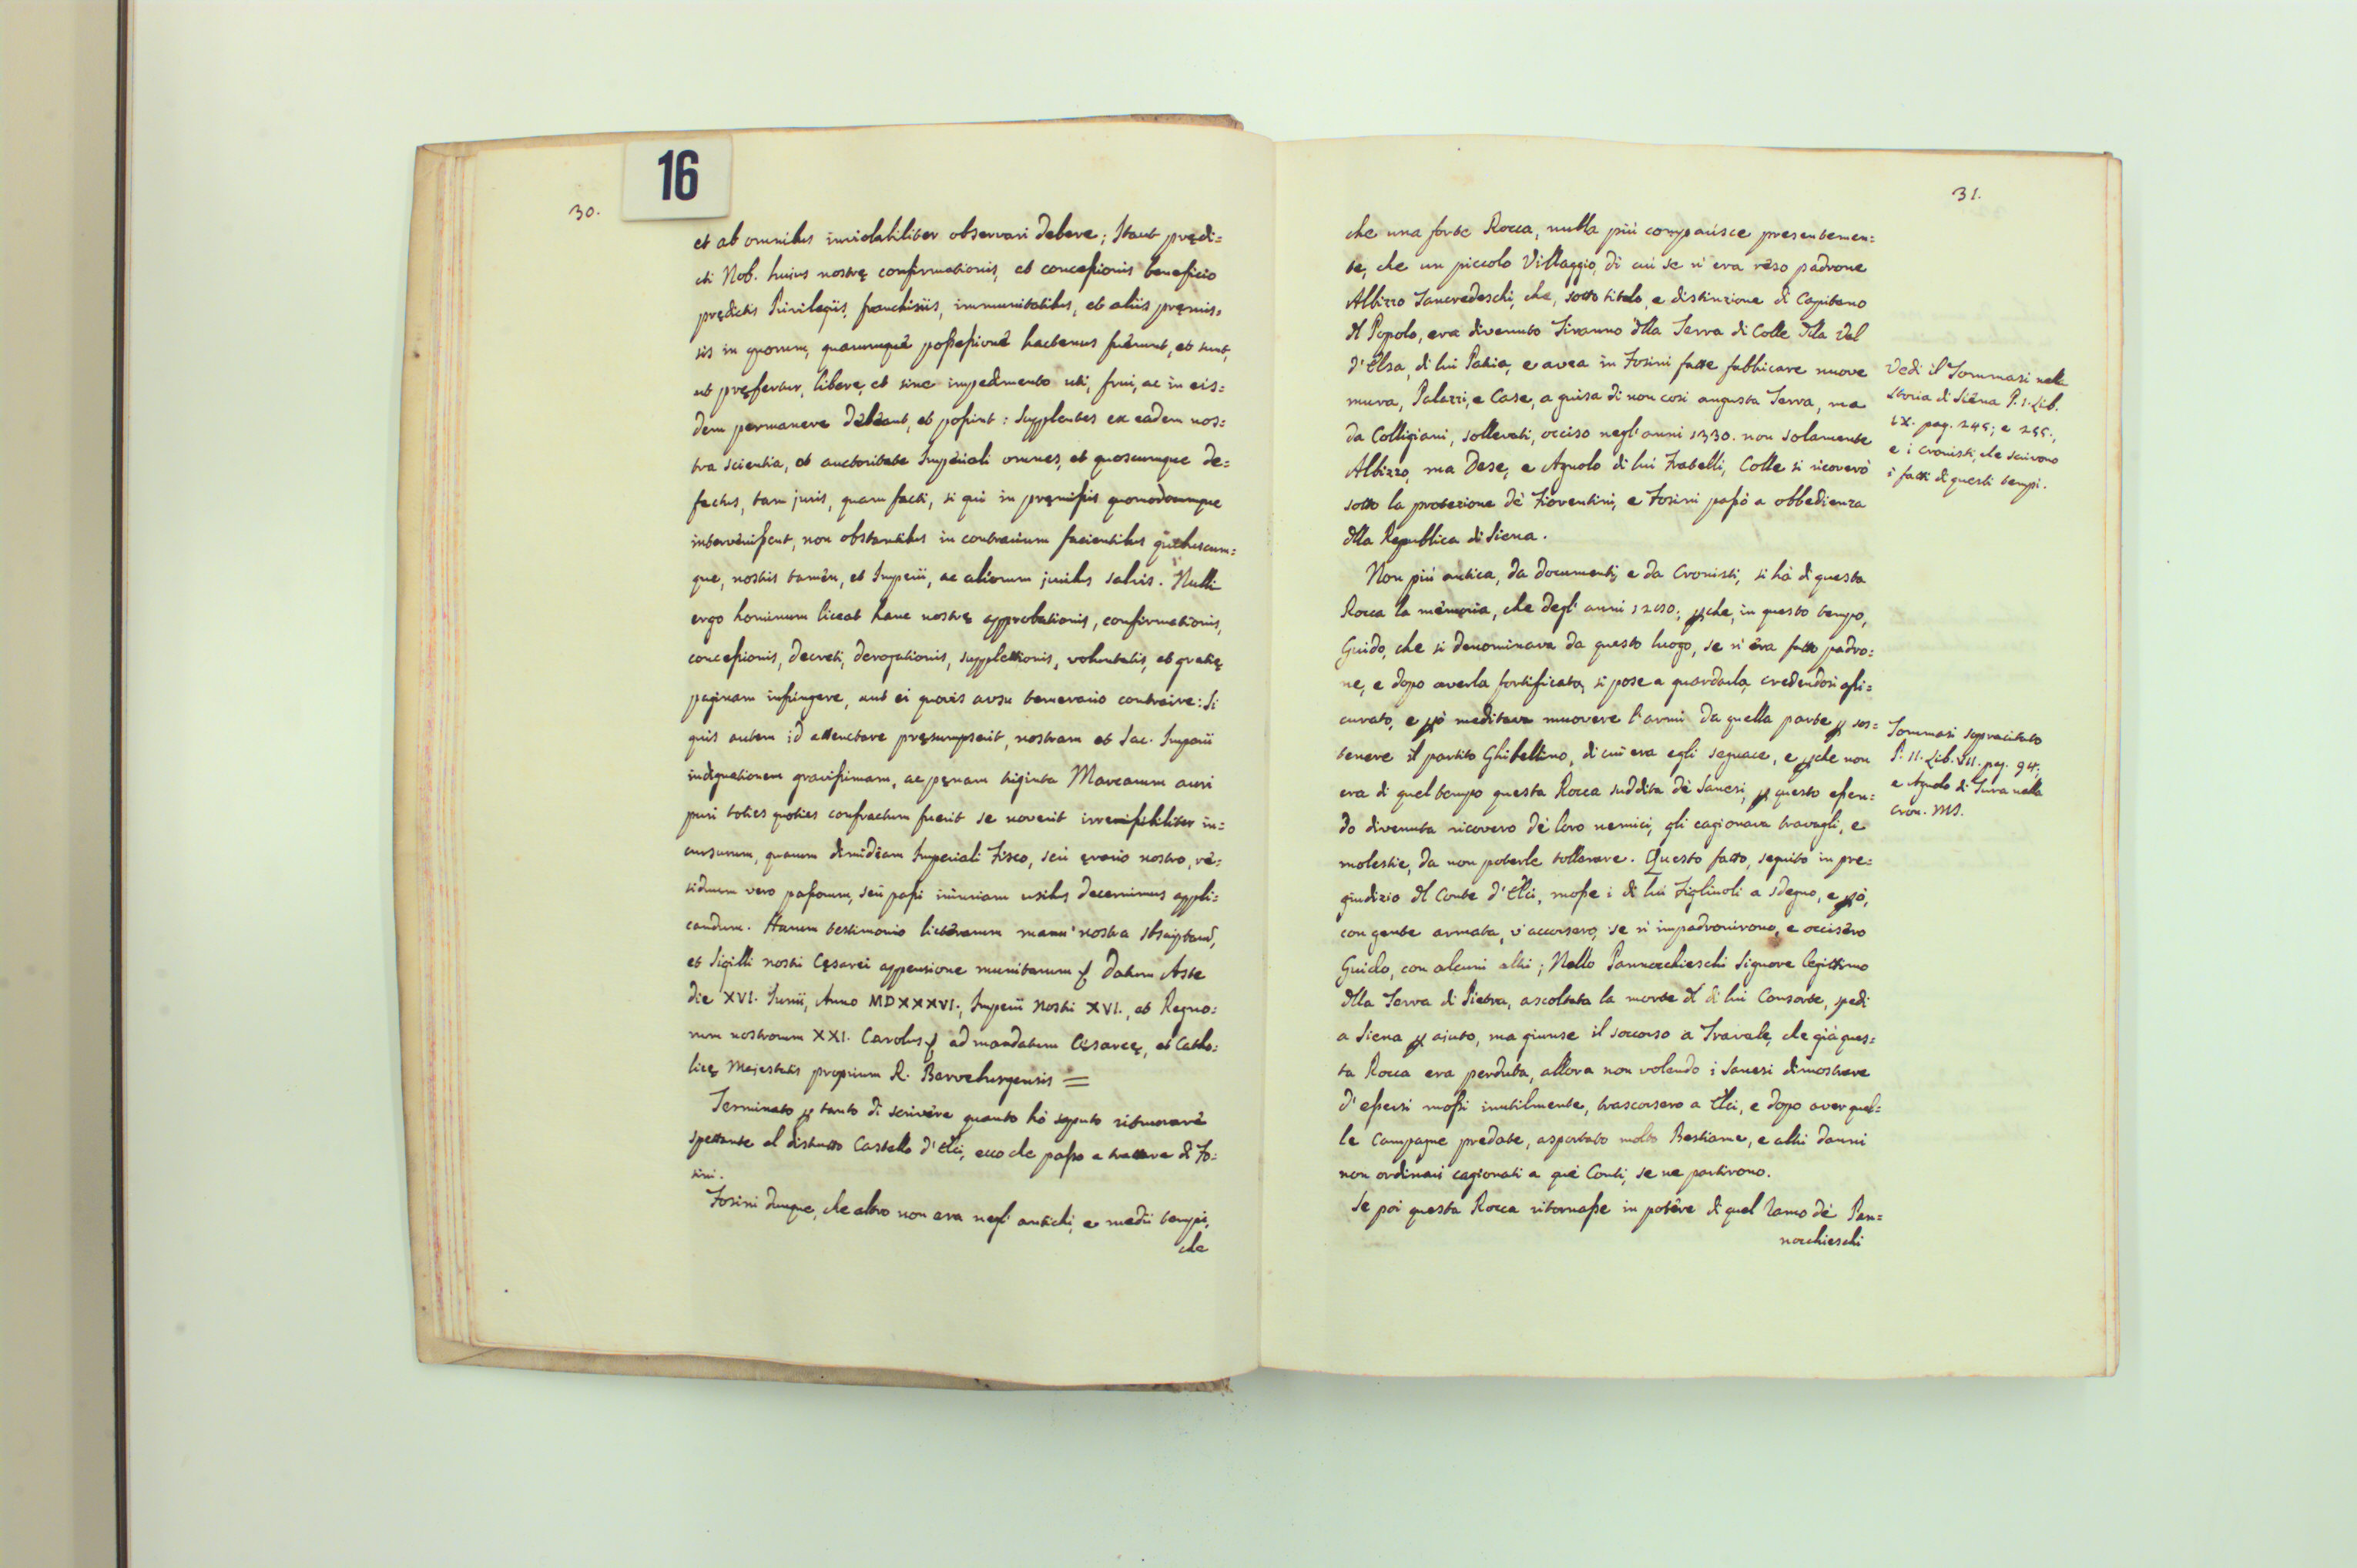 16
30.
et ab omnibus inviolabiliter observari debere; Itaut prędi=
cti Nob. huius nostrę confirmationis, et concessionis beneficio
prędictis Privilegiis, franchisiis, immunitatibus, et aliis pręmis=
sis in quorum, quarumque possessione hactenus fuerunt, et sunt,
ut pręfertur, libere, et sine impedimento uti, frui, ac in eis=
dem permanere debeant, et possint: supplentes ex eadem nos=
tra scientia, et auctoritate Imperiali omnes, et quoscumque de=
fectus, tam juris, quam facti, si qui in pręmissis quomodocumque
intervenissent, non obstantibus in contrarium facientibus quibuscum=
que, nostris tamen, et Imperii, ac aliorum juribus salvis. Nulli
ergo hominum liceat hanc nostrę approbationis, confirmationis,
concessionis, decreti, derogationis, supplettionis, voluntatis, et gratię
paginam infringere, aut ei quovis ausu temerario contraire: Si
quis autem id attenctare pręsumpserit, nostram et Sac. Imperii
indignationem gravissimam, ac pęnam triginta Marcarum auri
puri toties quoties confractum fuerit se noverit irremissibiliter in=
cursurum, quarum dimidiam Imperiali Fisco, seù ęrario nostro, re=
siduum vero passorum, seù passi iniuriam usibus decernimus appli=
candum. Harum testimonio litterarum manu nostra sbscriptarum,
et Sigilli nostri Cęsarei appensione munitarum Datum Aste
die XVI. Iunii, Anno MDXXXVI., Imperii Nostri XVI., et Regno=
rum nostrorum XXI. Carolus ad mandatum Cęsareę, et Catho=
licę Majestatis proprium R. Barvelurgensis =
Terminato p tanto di scrivere quanto hò saputo ritrovare
spettante al distrutto Castello d'Elci, ecco che passo a trattare di Fo=
sini.
Fosini dunque, che altro non era negl'antichi, e medii tempi,
che
31.
che una forte Rocca, nulla più comparisce presentemen=
te, che un piccolo Villaggio, di cui se n'era reso padrone
Albizzo Tancredeschi, che, sotto titolo, e distinzione di Capitano
dl Popolo, era divenuto Tiranno dlla Terra di Colle dlla Val
d'Elsa, di lui Patria, e avea in Fosini fatte fabbricare nuove
mura, Palazzi, e Case, a guisa di non così angusta Terra, ma
da Colligiani, sollevati, occiso negl'anni 1330. non solamente
Albizzo, ma Dese, e Agnolo di lui Fratelli, Colle si ricoverò
sotto la protezione dè Fiorentini, e Fosini passò a obbedienza
dlla Republica di Siena.
Vedi il Tommasi nella
Storia di Siena P. I. Lib.
IX. pag. 245; e 255.,
e i Cronisti, che scrivono
i fatti di questi tempi.
Non più antica, da documenti, e da Cronisti, si hà di questa
Rocca la memoria, che degl'anni 1260; pche, in questo tempo,
Guido, che si denominava da questo luogo, se n'era fatto padro=
ne, e dopo averla fortificata, si pose a guardarla, credendosi assi=
curato, e pò meditava muovere l'armi da quella parte p sos=
tenere il partito Ghibellino, di cui era egli seguace, e pche non
era di quel tempo questa Rocca suddita dè Sanesi, p questo essen=
do divenuta ricovero dè loro nemici, gli cagionava travagli, e
molestie, da non poterle tollerare. Questo fatto, seguito in pre=
giudizio dl Conte d'Elci, mosse i di lui Figlinoli a sdegno, e pò,
con gente armata, v'accorsero, se n'impadronirono, e occisero
Guido, con alcuni altri; Nello Pannocchieschi Signore legittimo
dlla Terra di Pietra, ascoltata la morte dl di lui Consorte, spedì
a Siena p aiuto, ma giunse il soccorso a Travale, che già ques=
ta Rocca era perduta, allora non volendo i Sanesi dimostrare
d'essersi mossi inutilmente, trascorsero a Elci, e dopo aver quel=
le Campagne predate, asportato molto Bestiame, e altri danni
non ordinari cagionati a què Conti, se ne partirono.
Se poi questa Rocca ritornasse in potere di quel Ramo dè Pan=
nocchieschi
Tommasi sopracitato
P. II. Lib. VII. pag. 94.;
e Agnolo di Tura nella
Cron. MS.